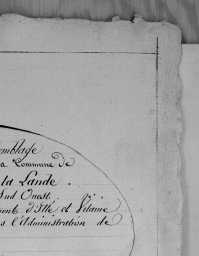 mblage
la Commune de
la Lande
Sud Ouest
ment d'Ille et Vilaine
s l'Administration de